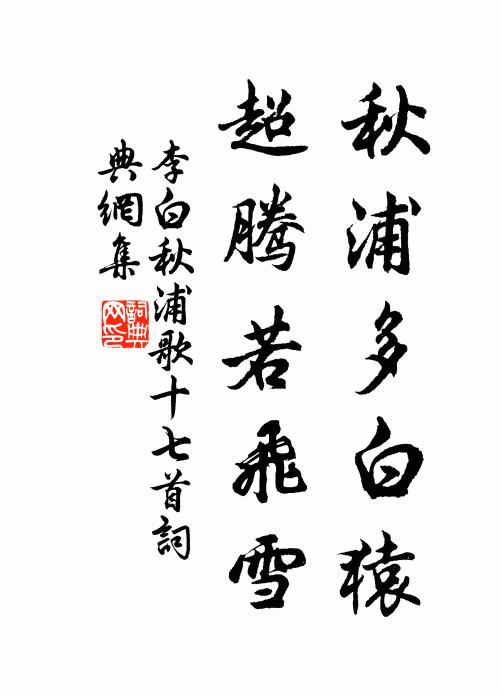 秋浦多白猿
超騰若飛雪
李白秋浦歌十七首詞
典網集
詞典
网印